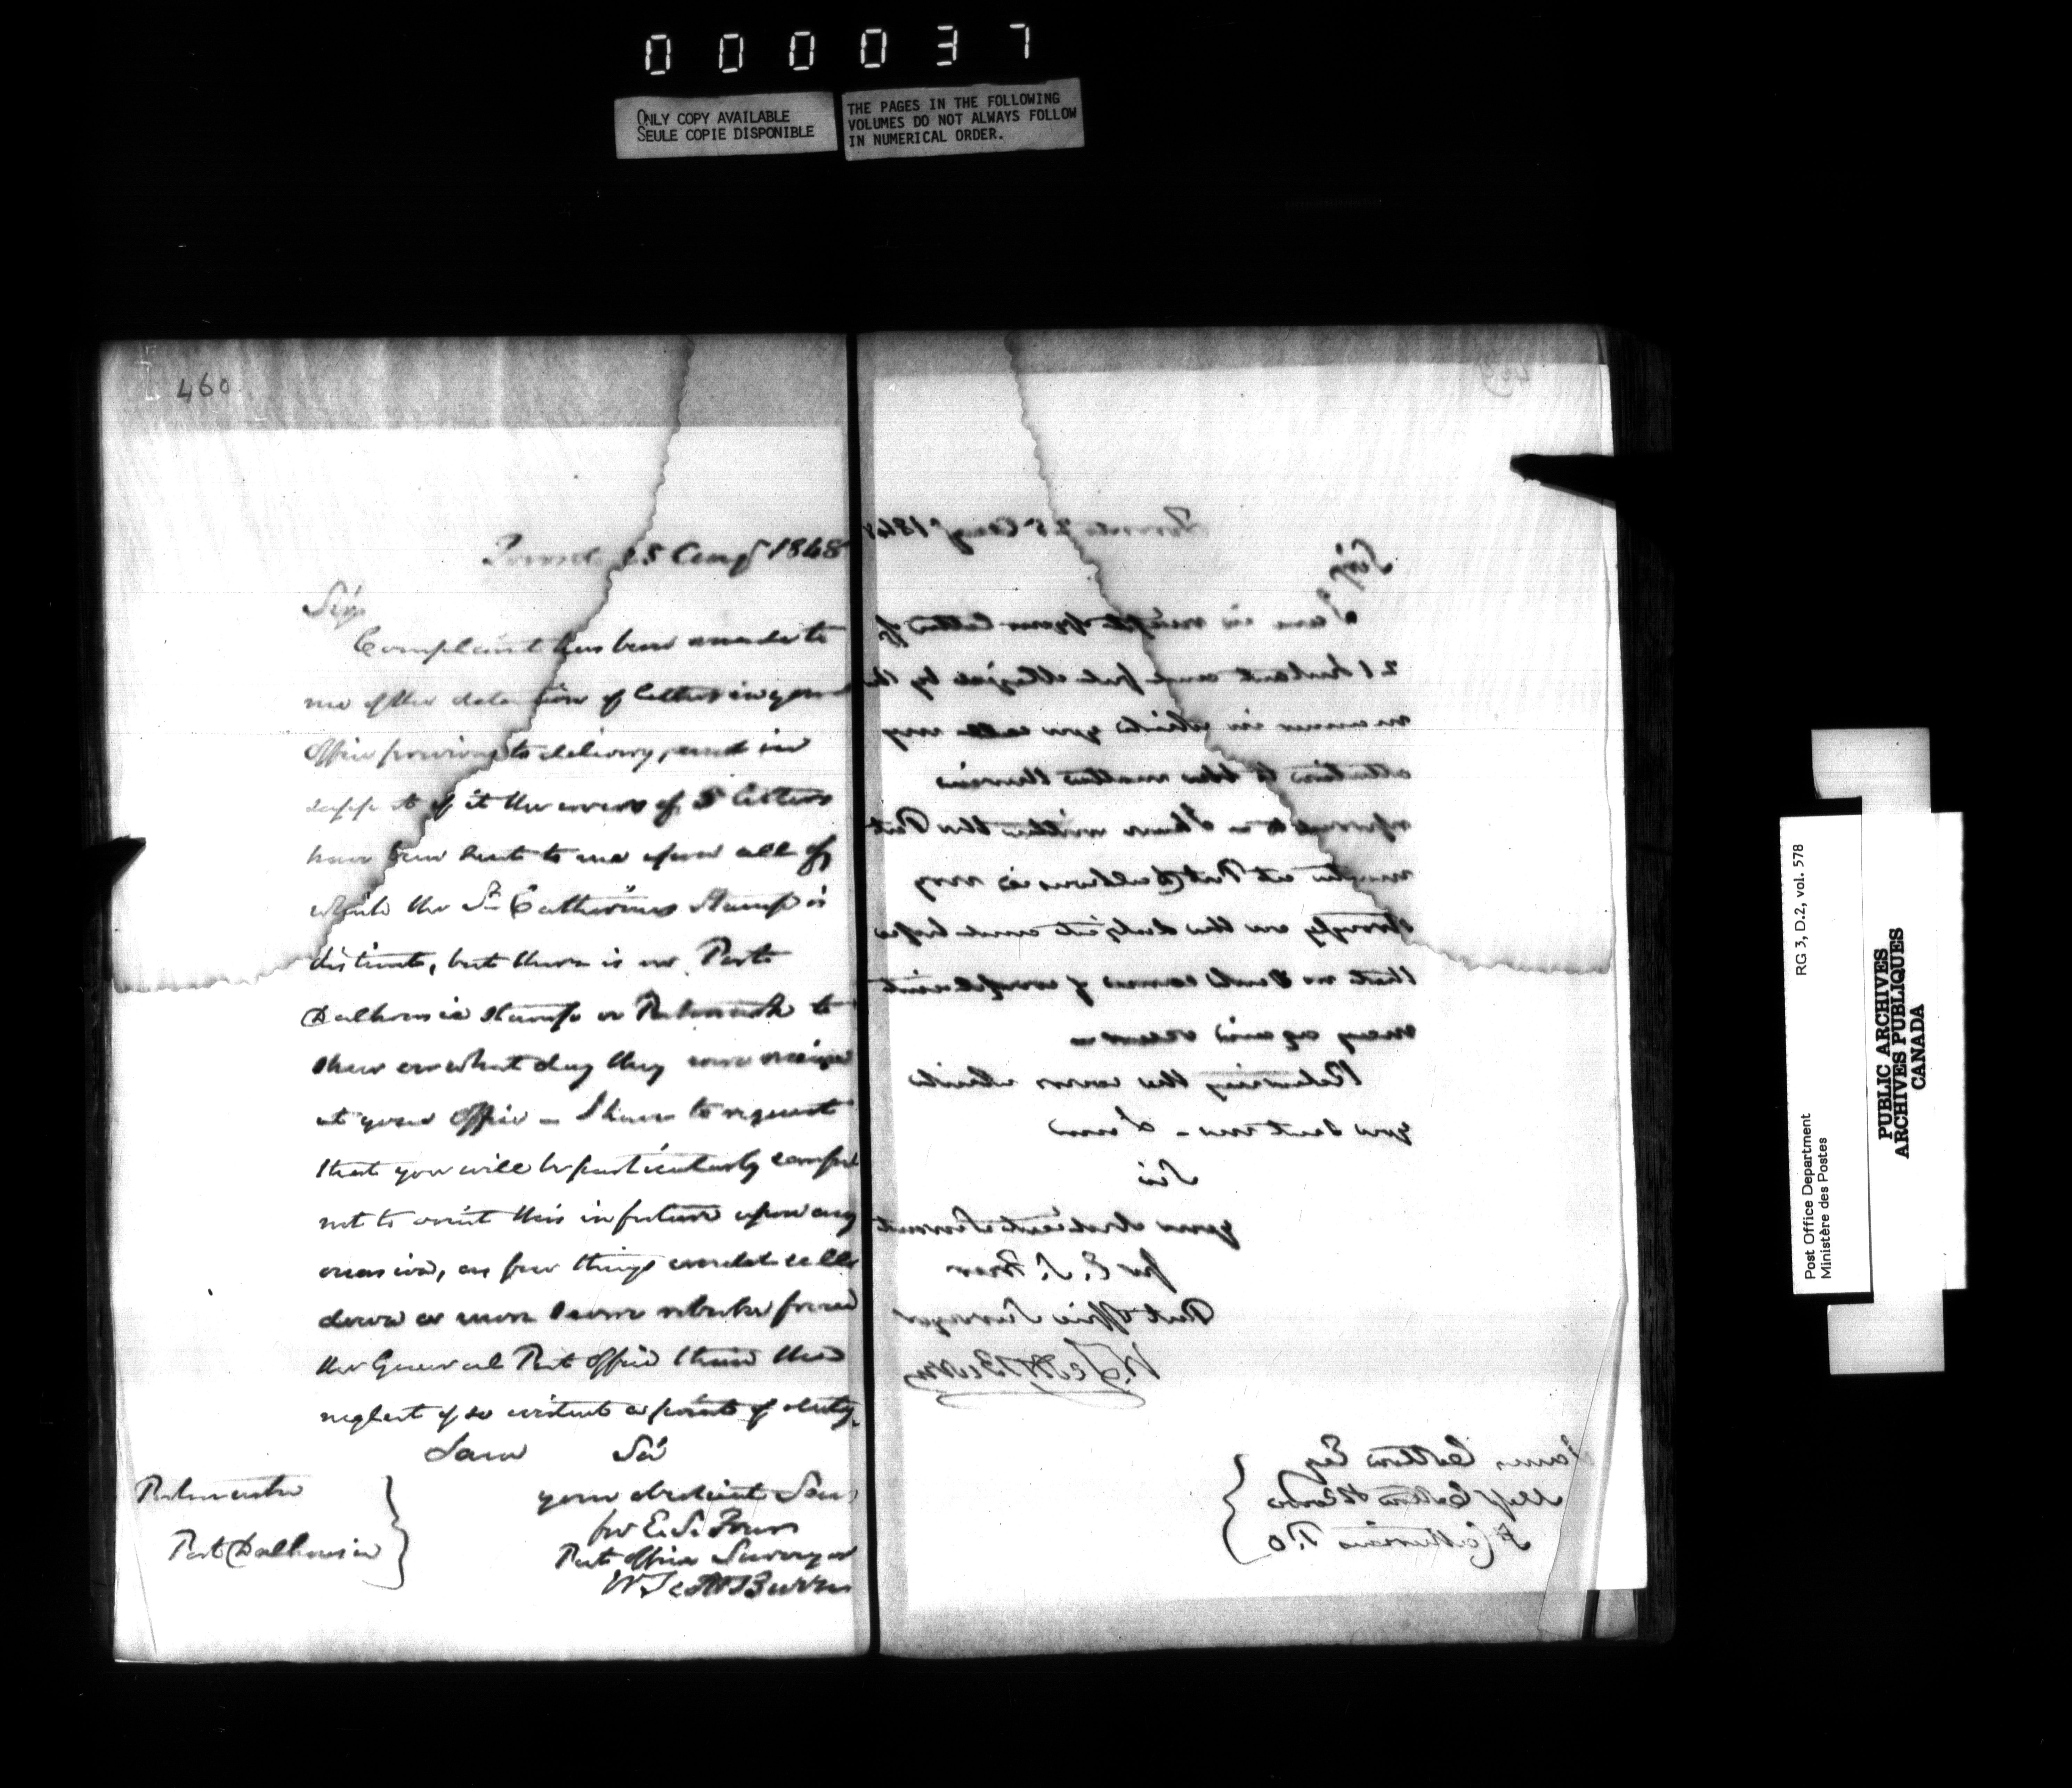 000037
ONLY COPY AVAILABLE
SEULE COPIE DISPONIBLE
THE PAGES IN THE FOLLOWING
VOLUMES DO NOT ALWAYS FOLLOW
IN NUMERICAL ORDER.
460
Toronto 25 Augt 1848
Sir,
Complaint has been made to
me of the detention of letters in your
Office previous to delivery, and in
support of it the covers of 5 letters
have been sent to me upon all of
which the St Catherines Stamp is
distinct, but there is no Port
Dalhousie Stamp or Postmark to
shew on what day they were received
at your Office – I have to request
that you will be particularly careful
not to omit this in future upon any
occasion, as few things would call
down a more severe rebuke from
the General Post Office than the
neglect of so evident a point of duty.
I am Sir
your obedient Ser
for E. S. Freer
Post Office Surveyor
W Scott Burn
Postmaster
Port Dalhousie
Toronto 25 Augt 1848
Sir,
I am in receipt of your letter of
21 Instant and feel obliged by the
manner in which you call my
attention to the matter therein
referred to – I have written the Post
master at Port Dalhousie very
strongly on the subject and hope
that no such cause of complaint
may again occur –
Returning the covers which
you sent me – I am
Sir
your obedient Servant
for E. S. Freer
Post Office Surveyor
W. Scott Burn
James Cotton Esq
Messrs Cotton &
St Catherines P.O
RG 3, D.2, vol. 578
Post Office Department
Ministère des Postes
PUBLIC ARCHIVES
ARCHIVES PUBLIQUES
CANADA